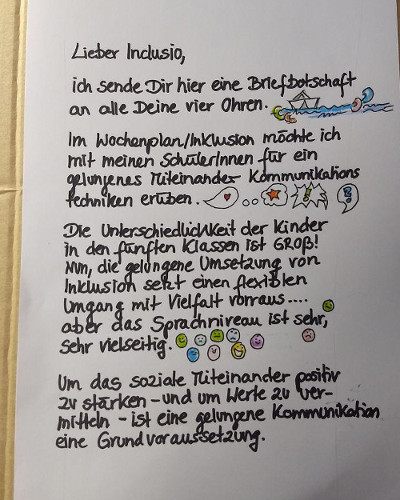 Lieber Inclusio,
ich sende Dir hier eine Briefbotschaft
an alle Deine vier Ohren.
Im Wochenplan/Inklusion möchte ich
mit meinen SchülerInnen für ein
gelungenes Miteinander Kommunikations
techniken erüben.
Die Unterschiedlichkeit der Kinder
in den fünften Klassen ist GROß!
Nun, die gelungene Umsetzung von
Inklusion setzt einen flexiblen
Umgang mit Vielfalt vorraus....
aber das Sprachniveau ist sehr,
sehr vielseitig.
Um das soziale Miteinander positiv
zu stärken - und um Werte zu ver-
mitteln - ist eine gelungene Kommunikation
eine Grundvoraussetzung.